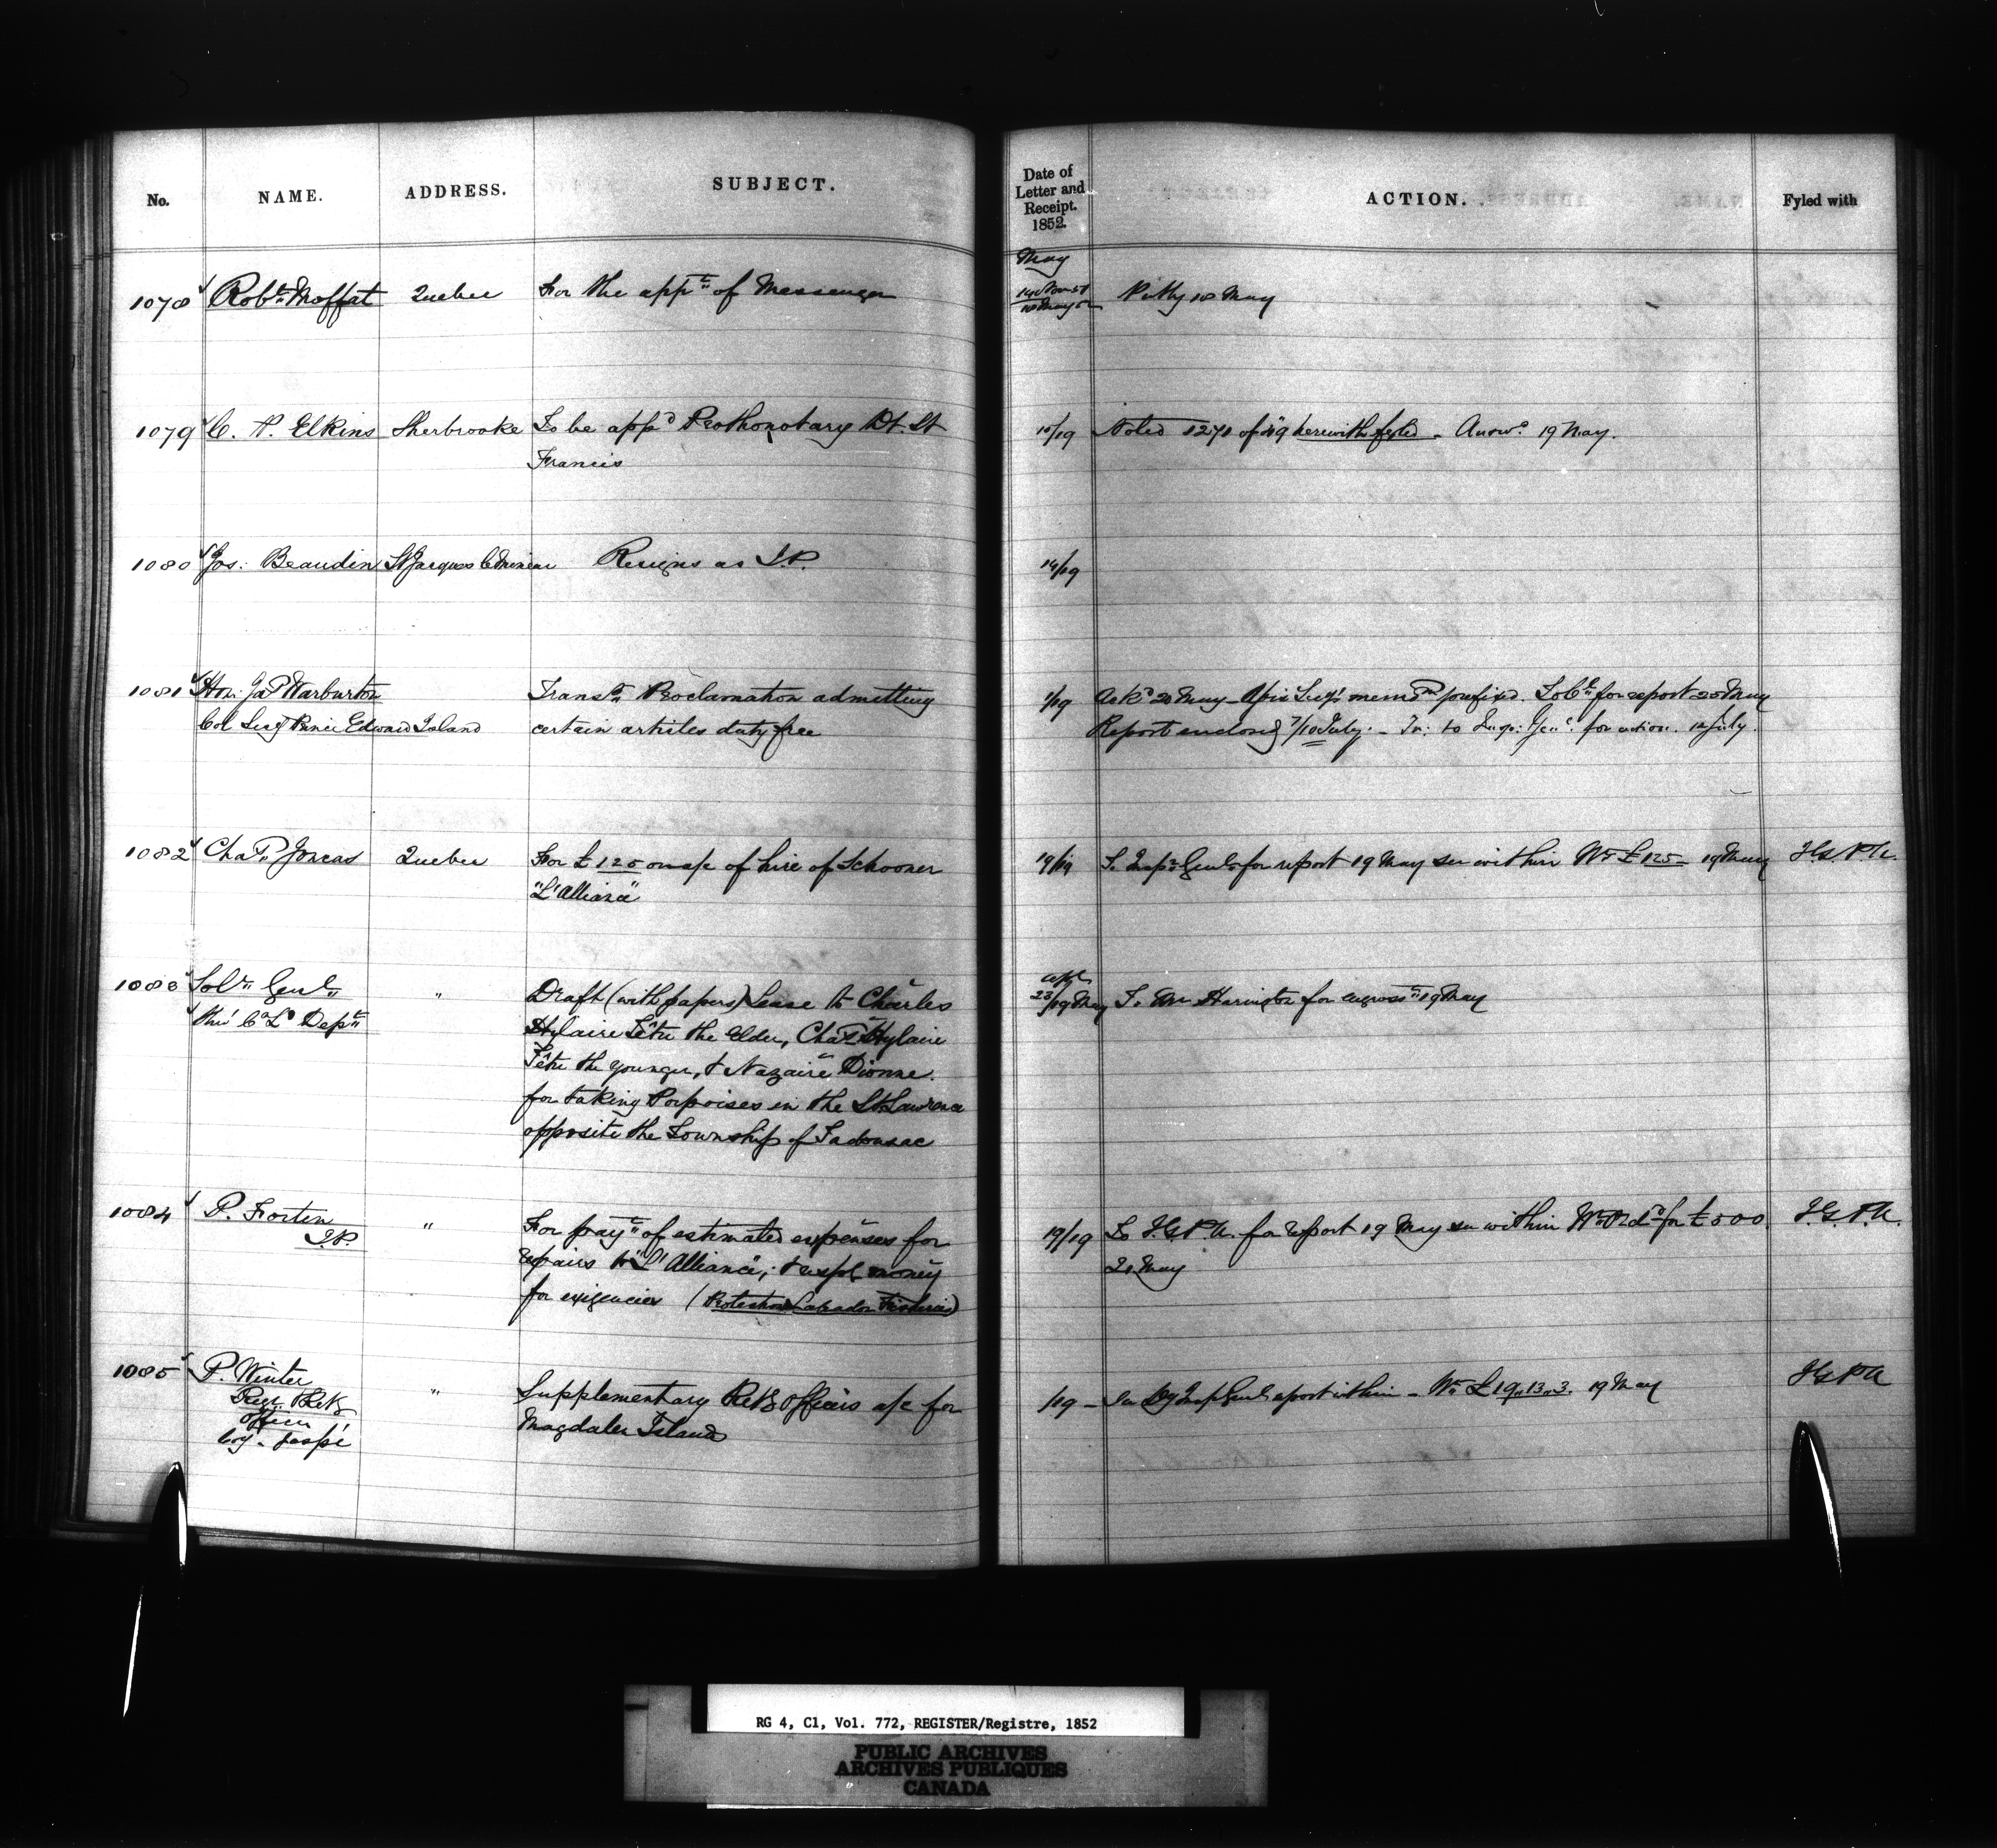 No. NAME. ADDRESS. SUBJECT. Date of Letter and Receipt. 1852. ACTION. Fyled with
May
1078 Robt. Moffat Quebec For the appt. of Messenger 14 Nov 51 18 May 52 18 May
1079 C. A. Elkins Sherbrooke To be appd Prothonotary Dt. St 15/19 Noted 1271 of 49 herewith fyled - Answd. 19 May.
Francis
1080 Jos: Beaudin St Jacques le Mineur Resigns as J.P. 14/19
1081 Hon: Jas Warburton Transg. Proclamation admitting 1/19 Ackd 20 May - memdm prefixed. for report 20 May
Col Secy Prince Edward Island certain articles duty free Report enclosed 7/10 July. - Tr: to Insp: Genl. for action. 12 July.
1082 Chas. Joncas Quebec For £125 on a/c of hire of Schooner 19/19 To Inspr Genl for report 19 May see within Wt £125 19 May I G P A.
"L'Alliance"
1083 Solr. Genl. " Draft (with papers) Lease to Charles 23/19 May To Mr Harington for engrosst. 19 May
thro' C. L. Dept. Hylaire Têtu the Elder, Chas. Hylaire
Têtu the younger, & Nazaire Dionne.
for taking Porpoises in the St Lawrence
opposite the Township of Tadousac
1084 P. Fortin " For payt. of estimated expenses for 19/19 To I.G.P.A. for report 19 May see within for £500. I.G.P.A.
J.P. repairs to "L'Alliance"; & money 20 May
for exigencies (Protection Labrador Fisheries)
1085 P. Winter " Supplementary Retg Officers a/c for /19 - See Dy Insp Genl report within - Wt. £19.,13.,3. 19 May I G P A
Retg
Officer
Coy. Gaspé Magdalen Islands
RG 4, C1, Vol. 772, REGISTER/Registre, 1852
PUBLIC ARCHIVES
ARCHIVES PUBLIQUES
CANADA